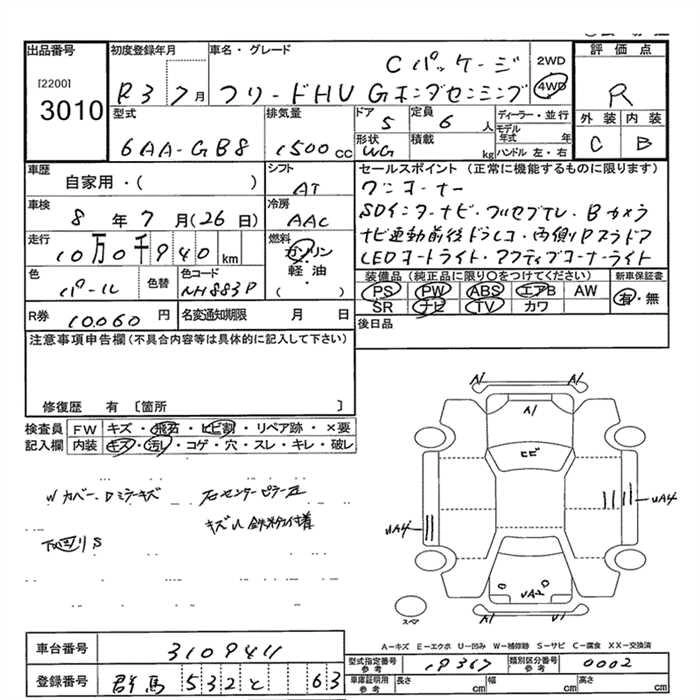 出品番号 初度登録年月 車名・グレード 評価点
[2200]
3010
R3 7月
Cパッケージ
フリードHV Gホンダセンシング
2WD
4WD
R
型式 排気量 ドア 定員 ディーラー・並行
6AA-GB8 1500cc 5 6人
モデル年式 年
形状 積載 ハンドル 左・右
WG kg
外装 内装
C B
車歴 シフト セールスポイント (正常に機能するものに限ります)
自家用・( )
AT
ワンオーナー
車検 冷房
8年7月(26日)
AAC
SDインターナビ・フルセグTV・Bカメラ
走行 燃料
10万0千940km
ガソリン・軽油
( )
ナビ連動前後ドラレコ・両側Pスラドア
LEDオートライト・アクティブコーナーライト
色 色替 色コード
パール NH883P
装備品 (純正品に限り○をつけてください) 新車保証書
PS PW ABS エアB AW
SR ナビ TV カワ
有・無
R券 10060円 名変通知期限 月 日
後日品
注意事項申告欄(不具合内容等は具体的に記入して下さい)
修復歴 有 〔箇所 〕
検査員記入欄
FW キズ・飛石・ヒビ割・リペア跡・×要
内装 キズ・汚れ・コゲ・穴・スレ・キレ・破レ
Wカバー、Dミラーキズ
右センターピラー
キズU 鉄粉付着
下廻りS
A1 A1
A1
ヒビ
UA4
UA4
UA2
A1 A1
スペア
A-キズ E-エクボ U-凹み W-補修跡 S-サビ C-腐食 XX-交換済
車台番号 3109411
登録番号 群馬 532 と 63
型式指定番号 参考 19367 類別区分番号 参考 0002
車庫証明用 参考 長さ cm 幅 cm 高さ cm